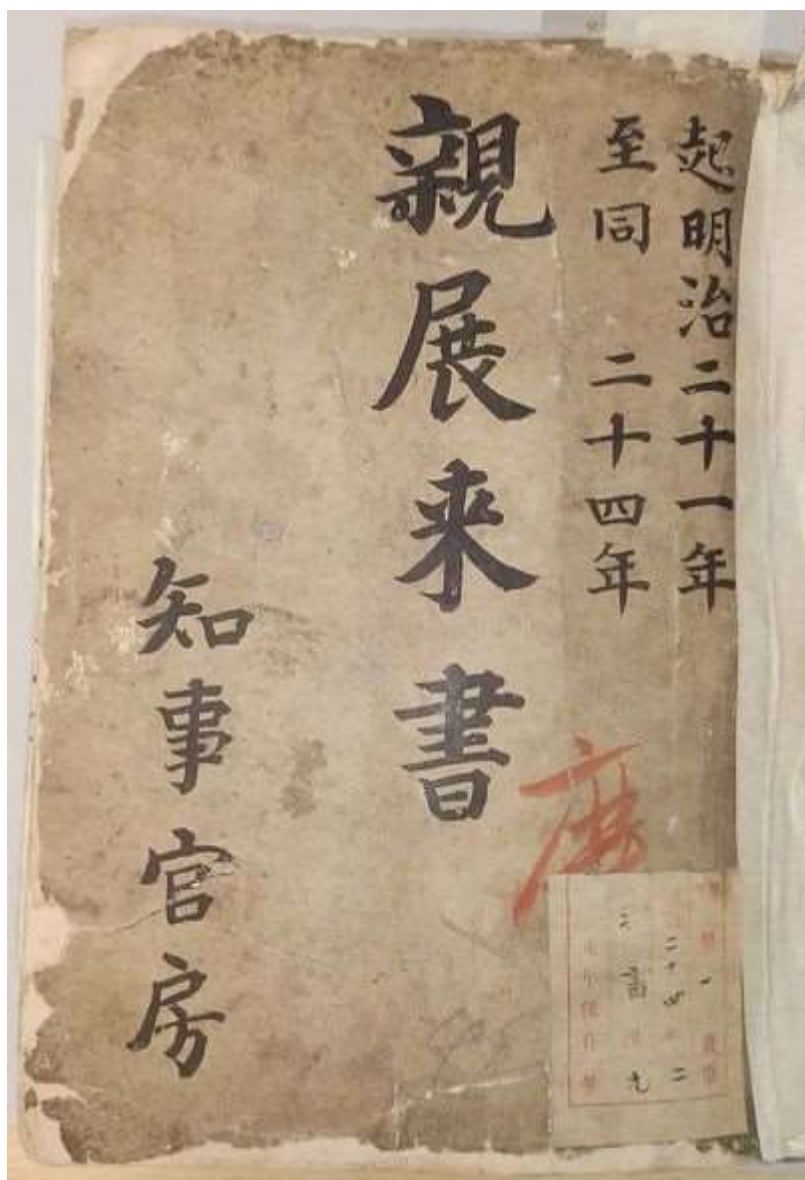 起明治二十一年
至同 二十四年
親展来書
知事官房